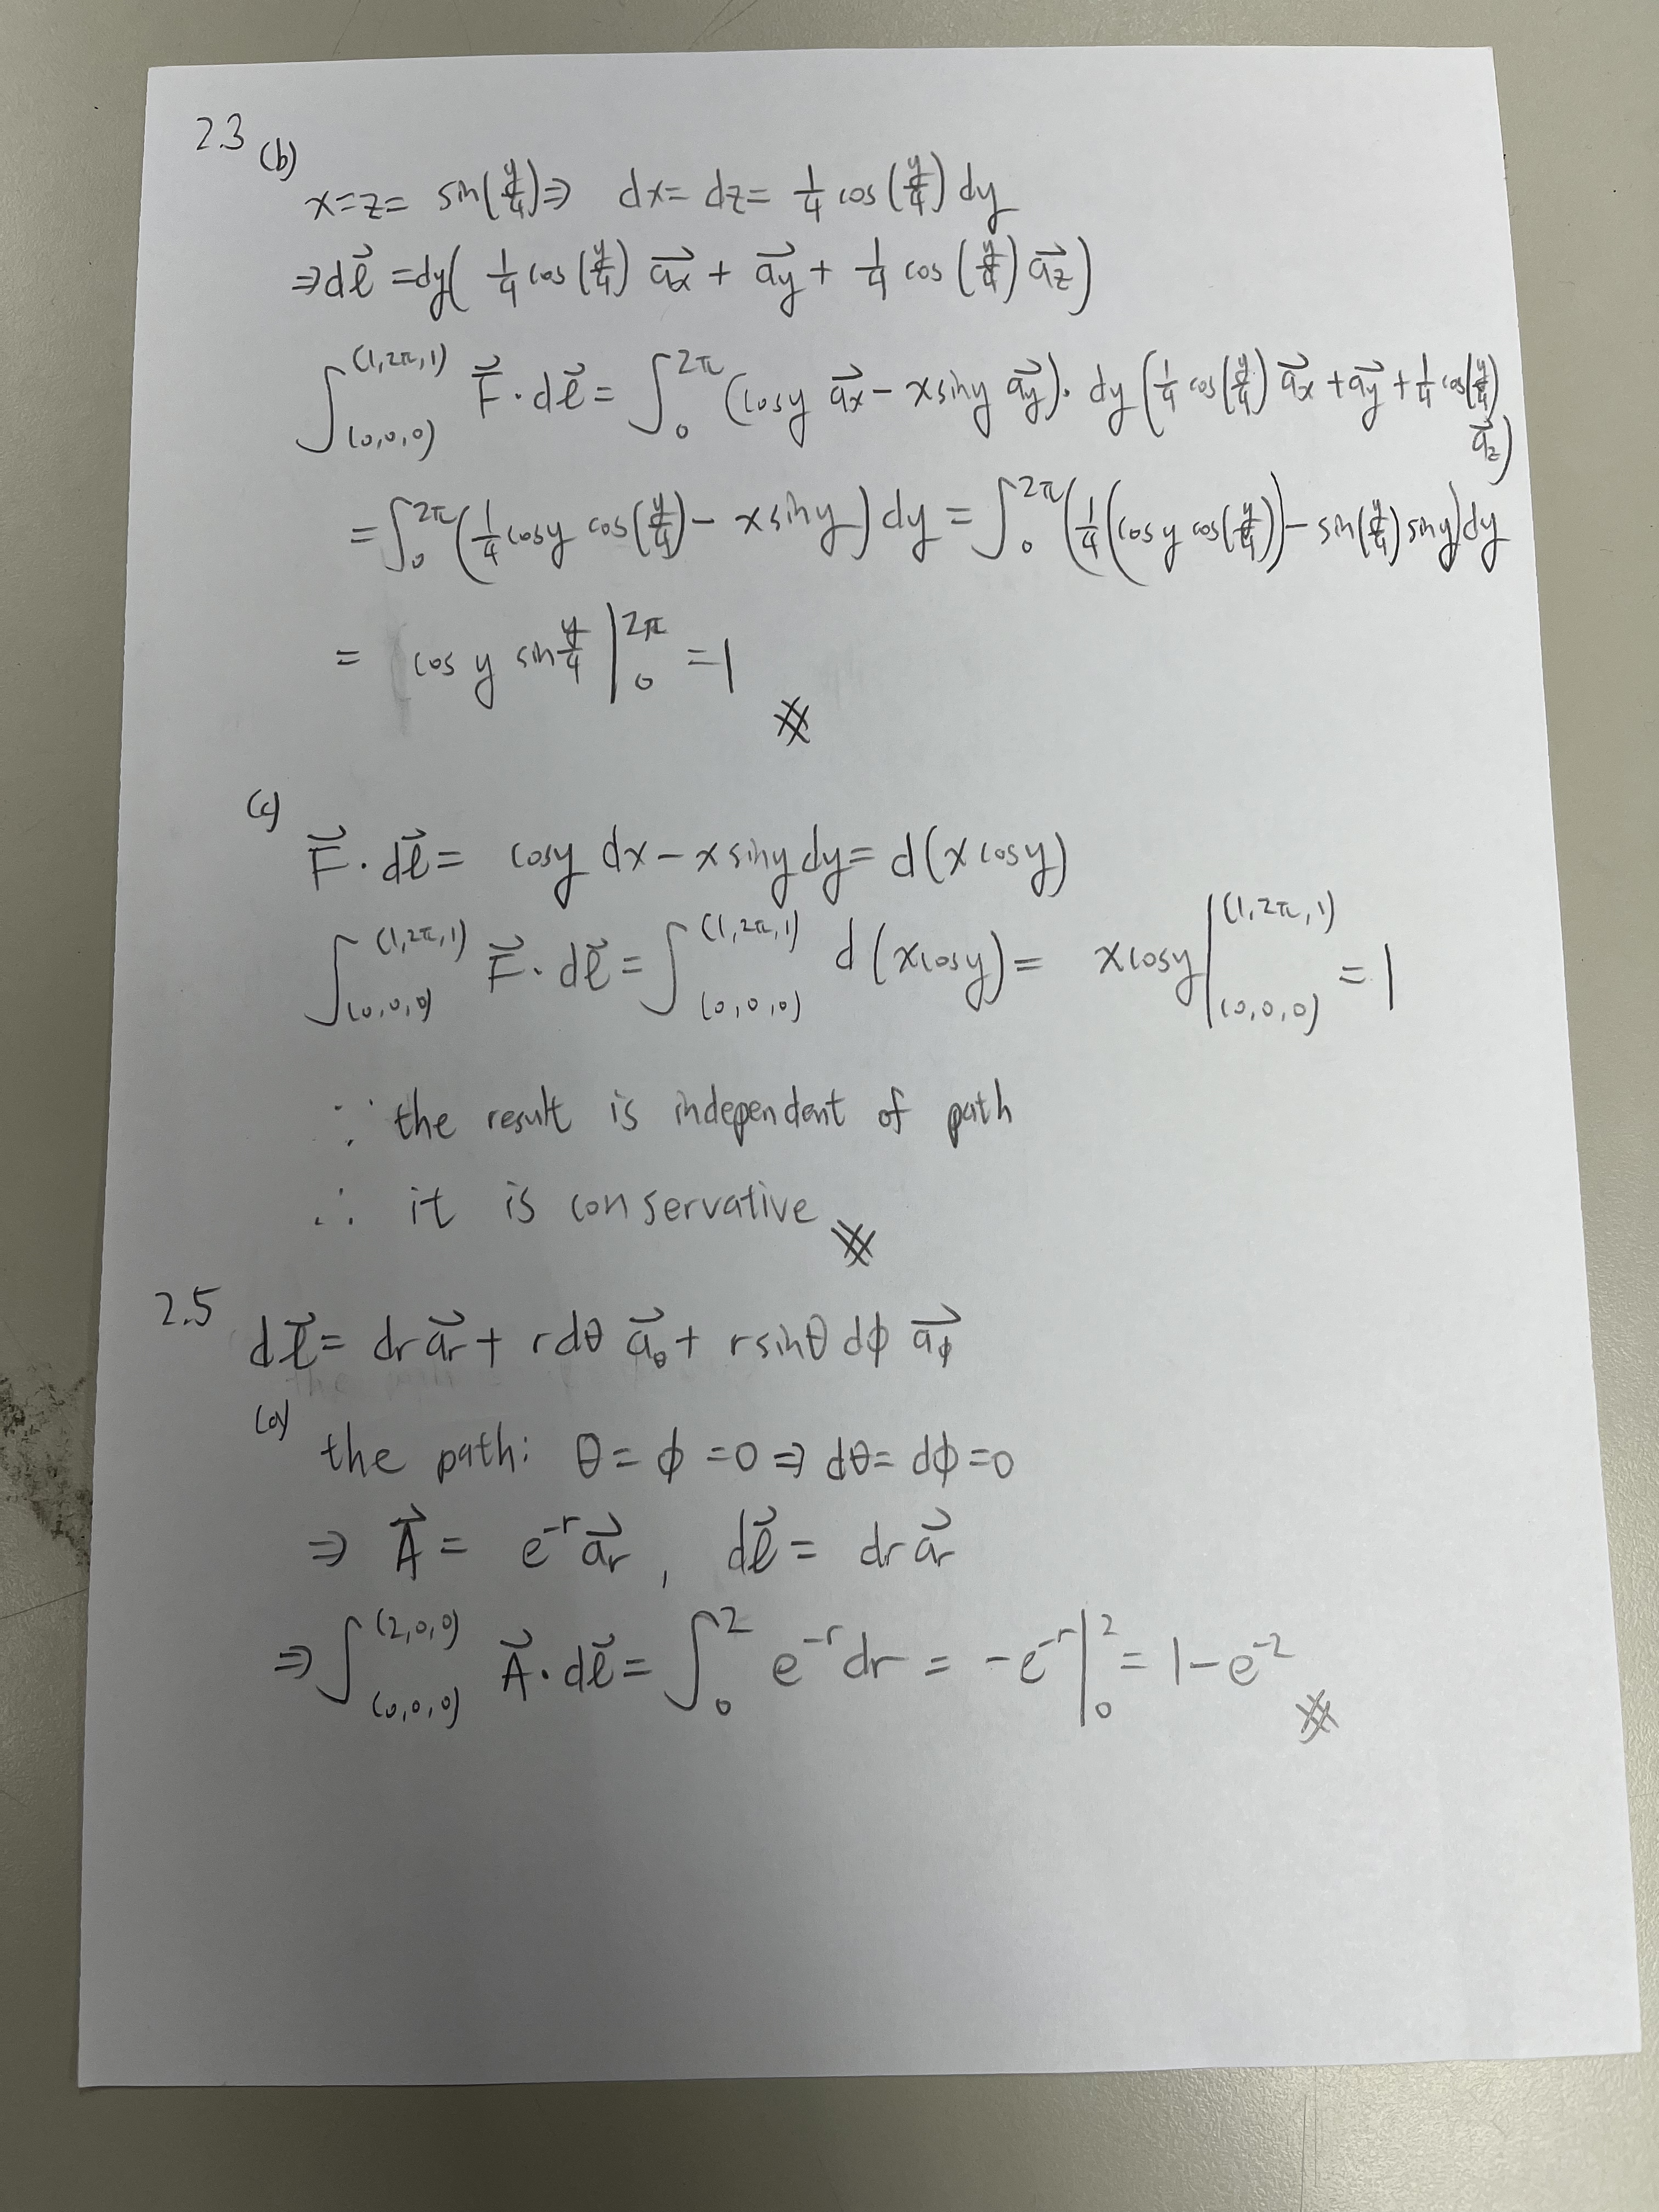 2.3
(b)
x=z= sin(y/4)⇒ dx= dz= 1/4 cos(y/4) dy
⇒dl⃗ =dy( 1/4 cos(y/4) a⃗x + a⃗y + 1/4 cos(y/4) a⃗z)
∫_(0,0,0)^(1,2π,1) F⃗·dl⃗= ∫_0^2π (cosy a⃗x − xsiny a⃗y)· dy (1/4 cos(y/4) a⃗x +a⃗y +1/4 cos(y/4)
a⃗z)
=∫_0^2π(1/4 cosy cos(y/4)− xsiny)dy =∫_0^2π(1/4(cosy cos(y/4))− sin(y/4) siny)dy
= cos y sin y/4 |_0^2π =1
(c)
F⃗·dl⃗= cosy dx−xsinydy= d(xcosy)
∫_(0,0,0)^(1,2π,1) F⃗·dl⃗=∫_(0,0,0)^(1,2π,1) d(xcosy)= xcosy|_(0,0,0)^(1,2π,1) =1
∵ the result is independent of path
∴ it is conservative
2.5
dl⃗= dr a⃗r+ rdθ a⃗θ+ rsinθ dϕ a⃗ϕ
(a)
the path: θ= ϕ =0⇒dθ= dϕ=0
⇒ A⃗= e^-r a⃗r, dl⃗= dr a⃗r
⇒∫_(0,0,0)^(2,0,0) A⃗·dl⃗=∫_0^2 e^-r dr = -e^-r|_0^2 = 1−e^-2